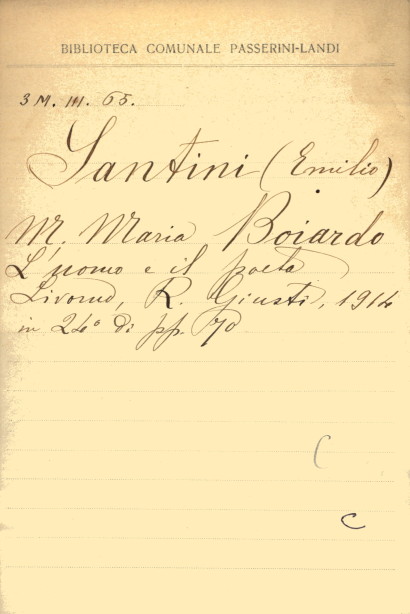 BIBLIOTECA COMUNALE PASSERINI-LANDI
3 M. III. 65.
Santini (Emilio)
M. Maria Boiardo
L'uomo e il poeta
Livorno, R. Giusti, 1914
in 24° di pp. 70
C
C